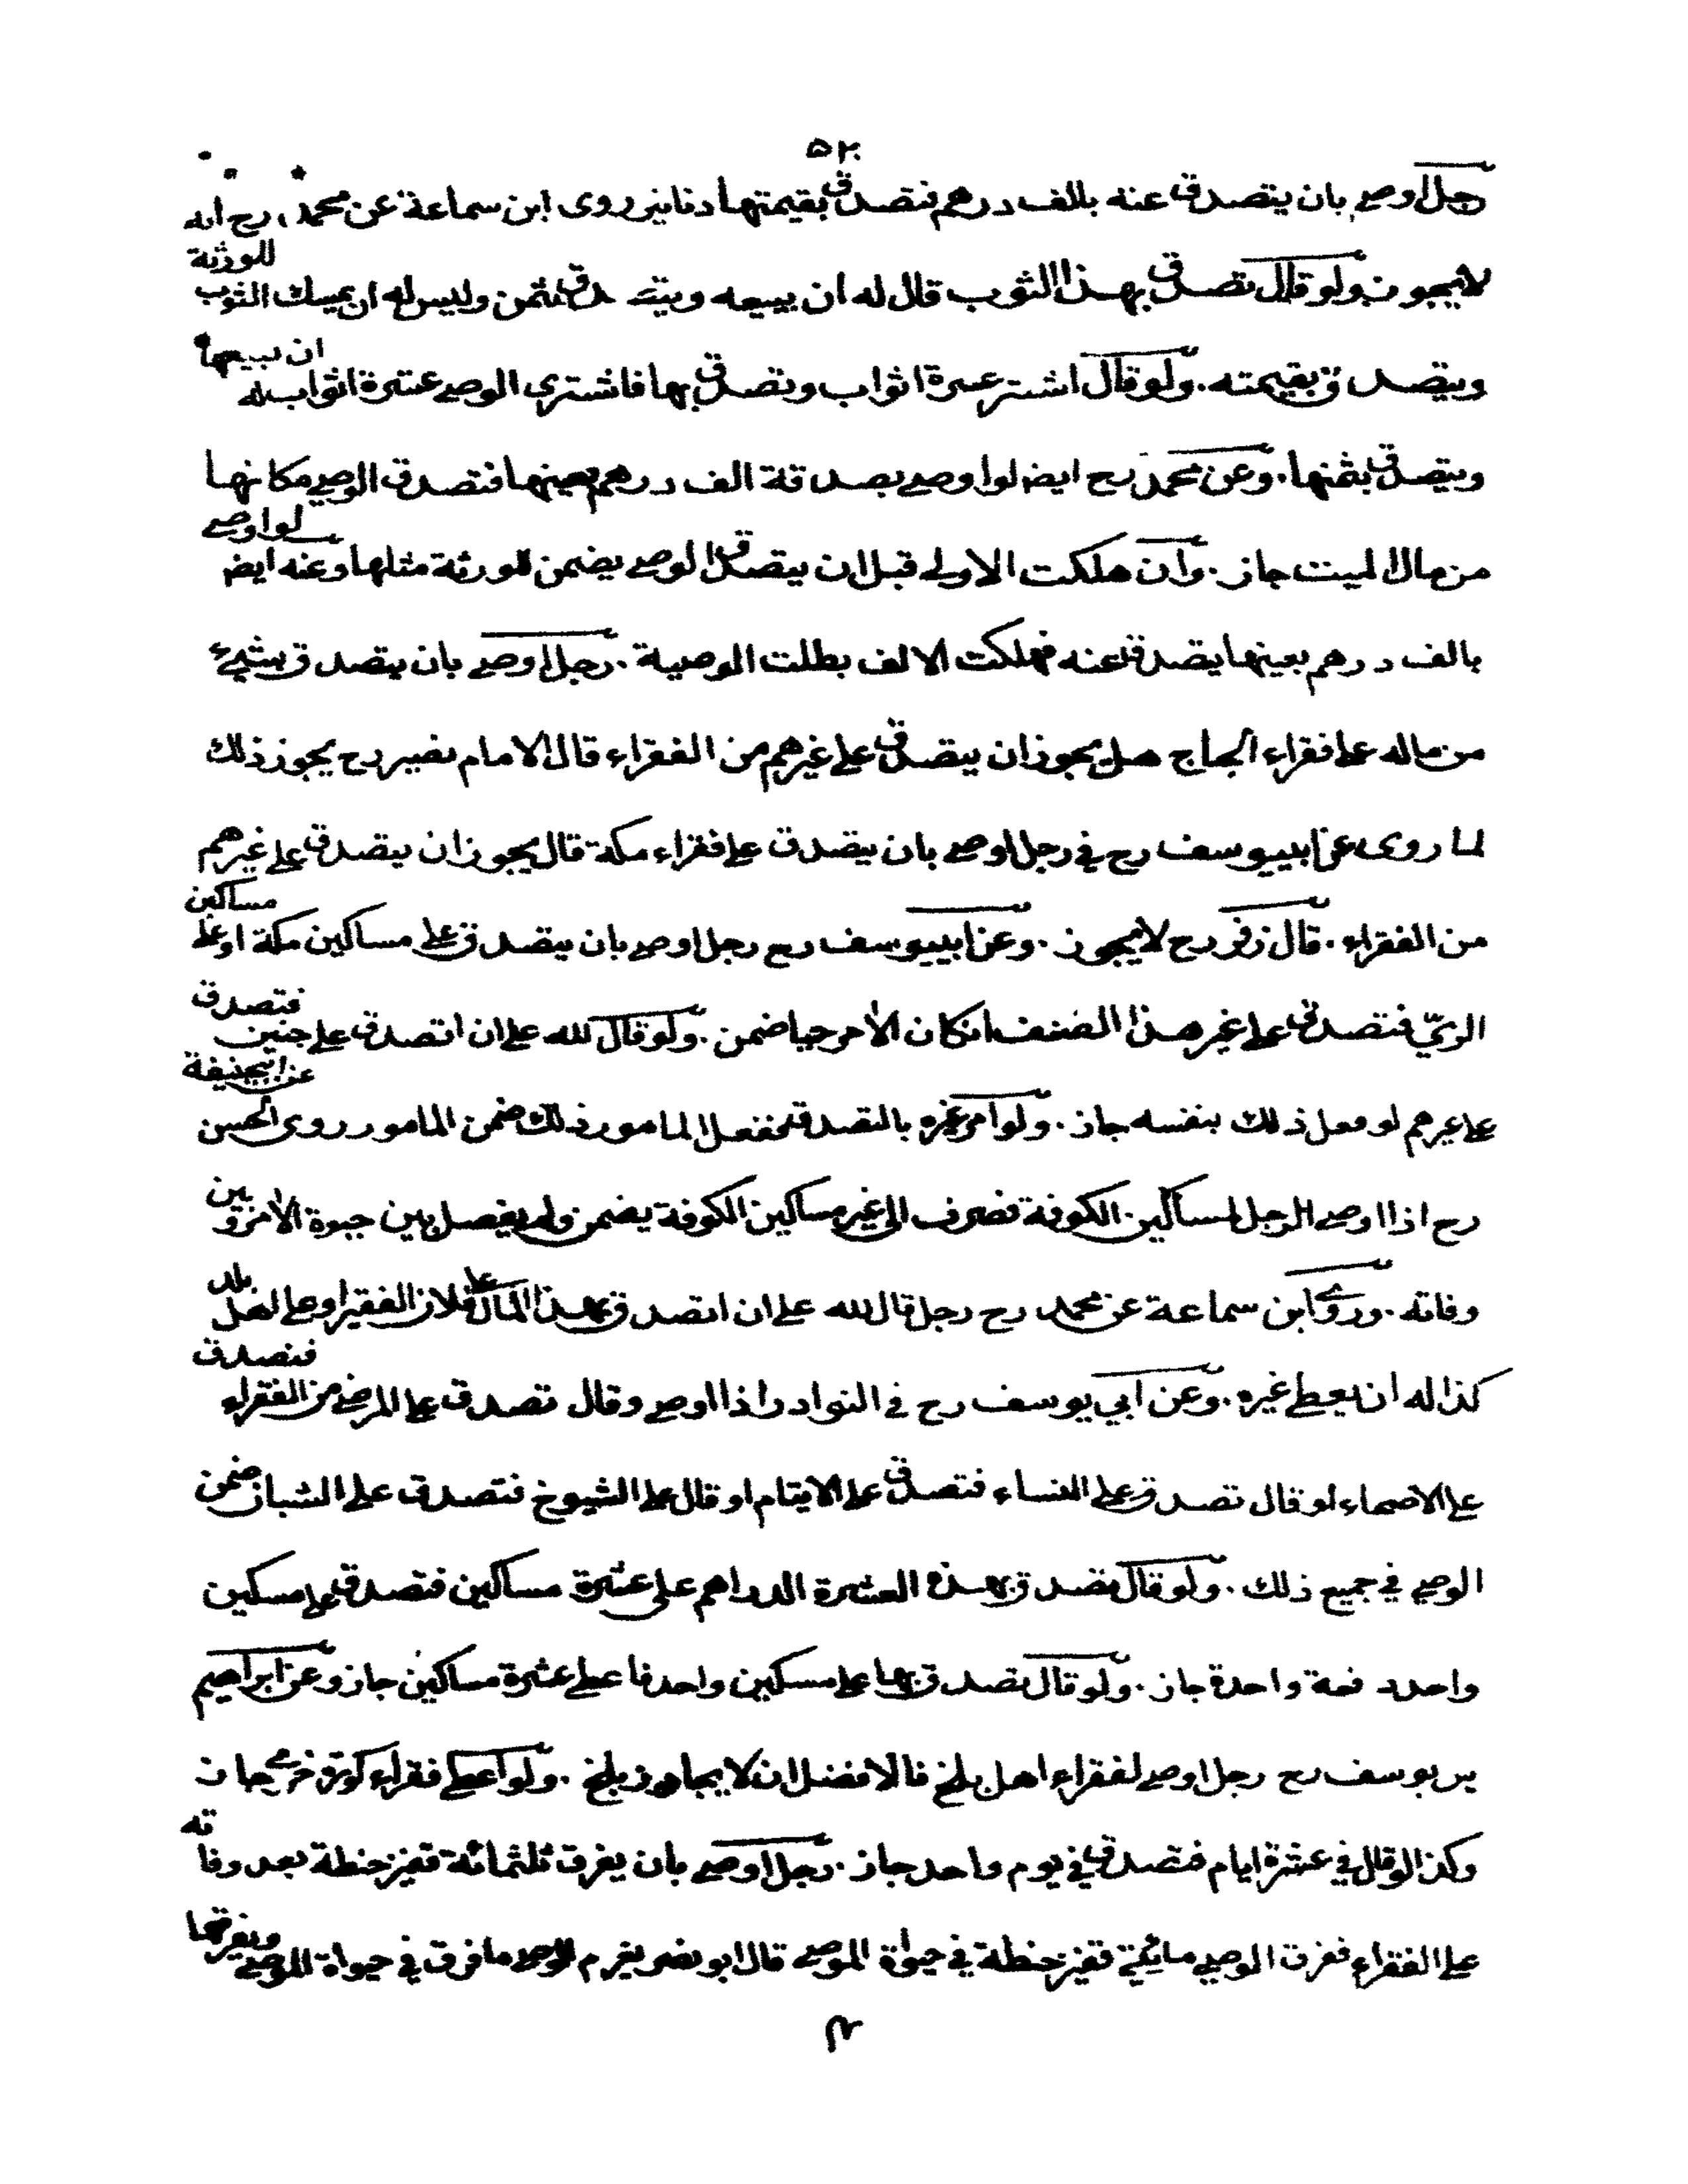 ٥٢
رجل اوصى بان يتصدق عنه بالف درهم فتصدق بقيمتها دنانير روى ابن سماعة عن محمد رح انه
لايجوز ولو قال تصدق بهذا الثوب قال له ان يبيعه ويتصدق بالثمن وليس له ان يمسك الثوب للورثة
ويتصدق بقيمته . ولو قال اشتر عشرة اثواب وتصدق بها فاشترى الوصى عشرة اثواب له ان يبيعها
ويتصدق بثمنها . وعن محمد رح ايضا لو اوصى بصدقة الف درهم بعينها فتصدق الوصى مكانها
من مال الميت جاز . وان هلكت الاولى قبل ان يتصدق الوصى يضمن للورثة مثلها وعنه ايضا لو اوصى
بالف درهم بعينها يتصدق عنه فهلكت الالف بطلت الوصية . رجل اوصى بان يتصدق بشىء
من ماله على فقراء الحاج هل يجوز ان يتصدق على غيرهم من الفقراء قال الامام نصير رح يجوز ذلك
لما روى عن ابييوسف رح في رجل اوصى بان يتصدق على فقراء مكة قال يجوز ان يتصدق على غيرهم
من الفقراء . قال زفر رح لايجوز . وعن ابييوسف رح رجل اوصى بان يتصدق على مساكين مكة او على مساكين
الريّ فتصدق على غير هذا الصنف انكان الآمر حيا ضمن . ولو قال لله على ان اتصدق على جنين فتصدق
على غيرهم لو فعل ذلك بنفسه جاز . ولو امر غيره بالتصدق ففعل المامور ذلك ضمن المامور روى الحسن عن ابيحنيفة
رح اذا اوصى الرجل لمساكين الكوفة فصرف الى غير مساكين الكوفة يضمن ولم يفصل بين حيوة الآمر وبين
وفاته . وروى ابن سماعة عن محمد رح رجل قال لله على ان اتصدق بهذا المال على فلان الفقير او على اهل بلد
كذا له ان يعطى غيره . وعن ابي يوسف رح في النوادر اذا اوصى وقال تصدق على المرضى من الفقراء فتصدق
على الاصحاء او قال تصدق على النساء فتصدق على الايتام او قال على الشيوخ فتصدق على الشبان ضمن
الوصي في جميع ذلك . ولو قال تصدق بهذه العشرة الدراهم على عشرة مساكين فتصدق على مسكين
واحد دفعة واحدة جاز . ولو قال تصدق بها على مسكين واحد فاعطى عشرة مساكين جاز وعن ابراهيم
بن يوسف رح رجل اوصى لفقراء اهل بلخ فالافضل ان لايجاوز بلخ . ولو اعطى فقراء كورة اخرى جاز
وكذا لو قال في عشرة ايام فتصدق في يوم واحد جاز . رجل اوصى بان يفرق ثلثمائة قفيز حنطة بعد وفاته
على الفقراء ففرق الوصي مائتي قفيز حنطة في حيوة الموصى قال ابو نصر يغرم الوصى ما فرق في حيوة الموصى ويفرقها